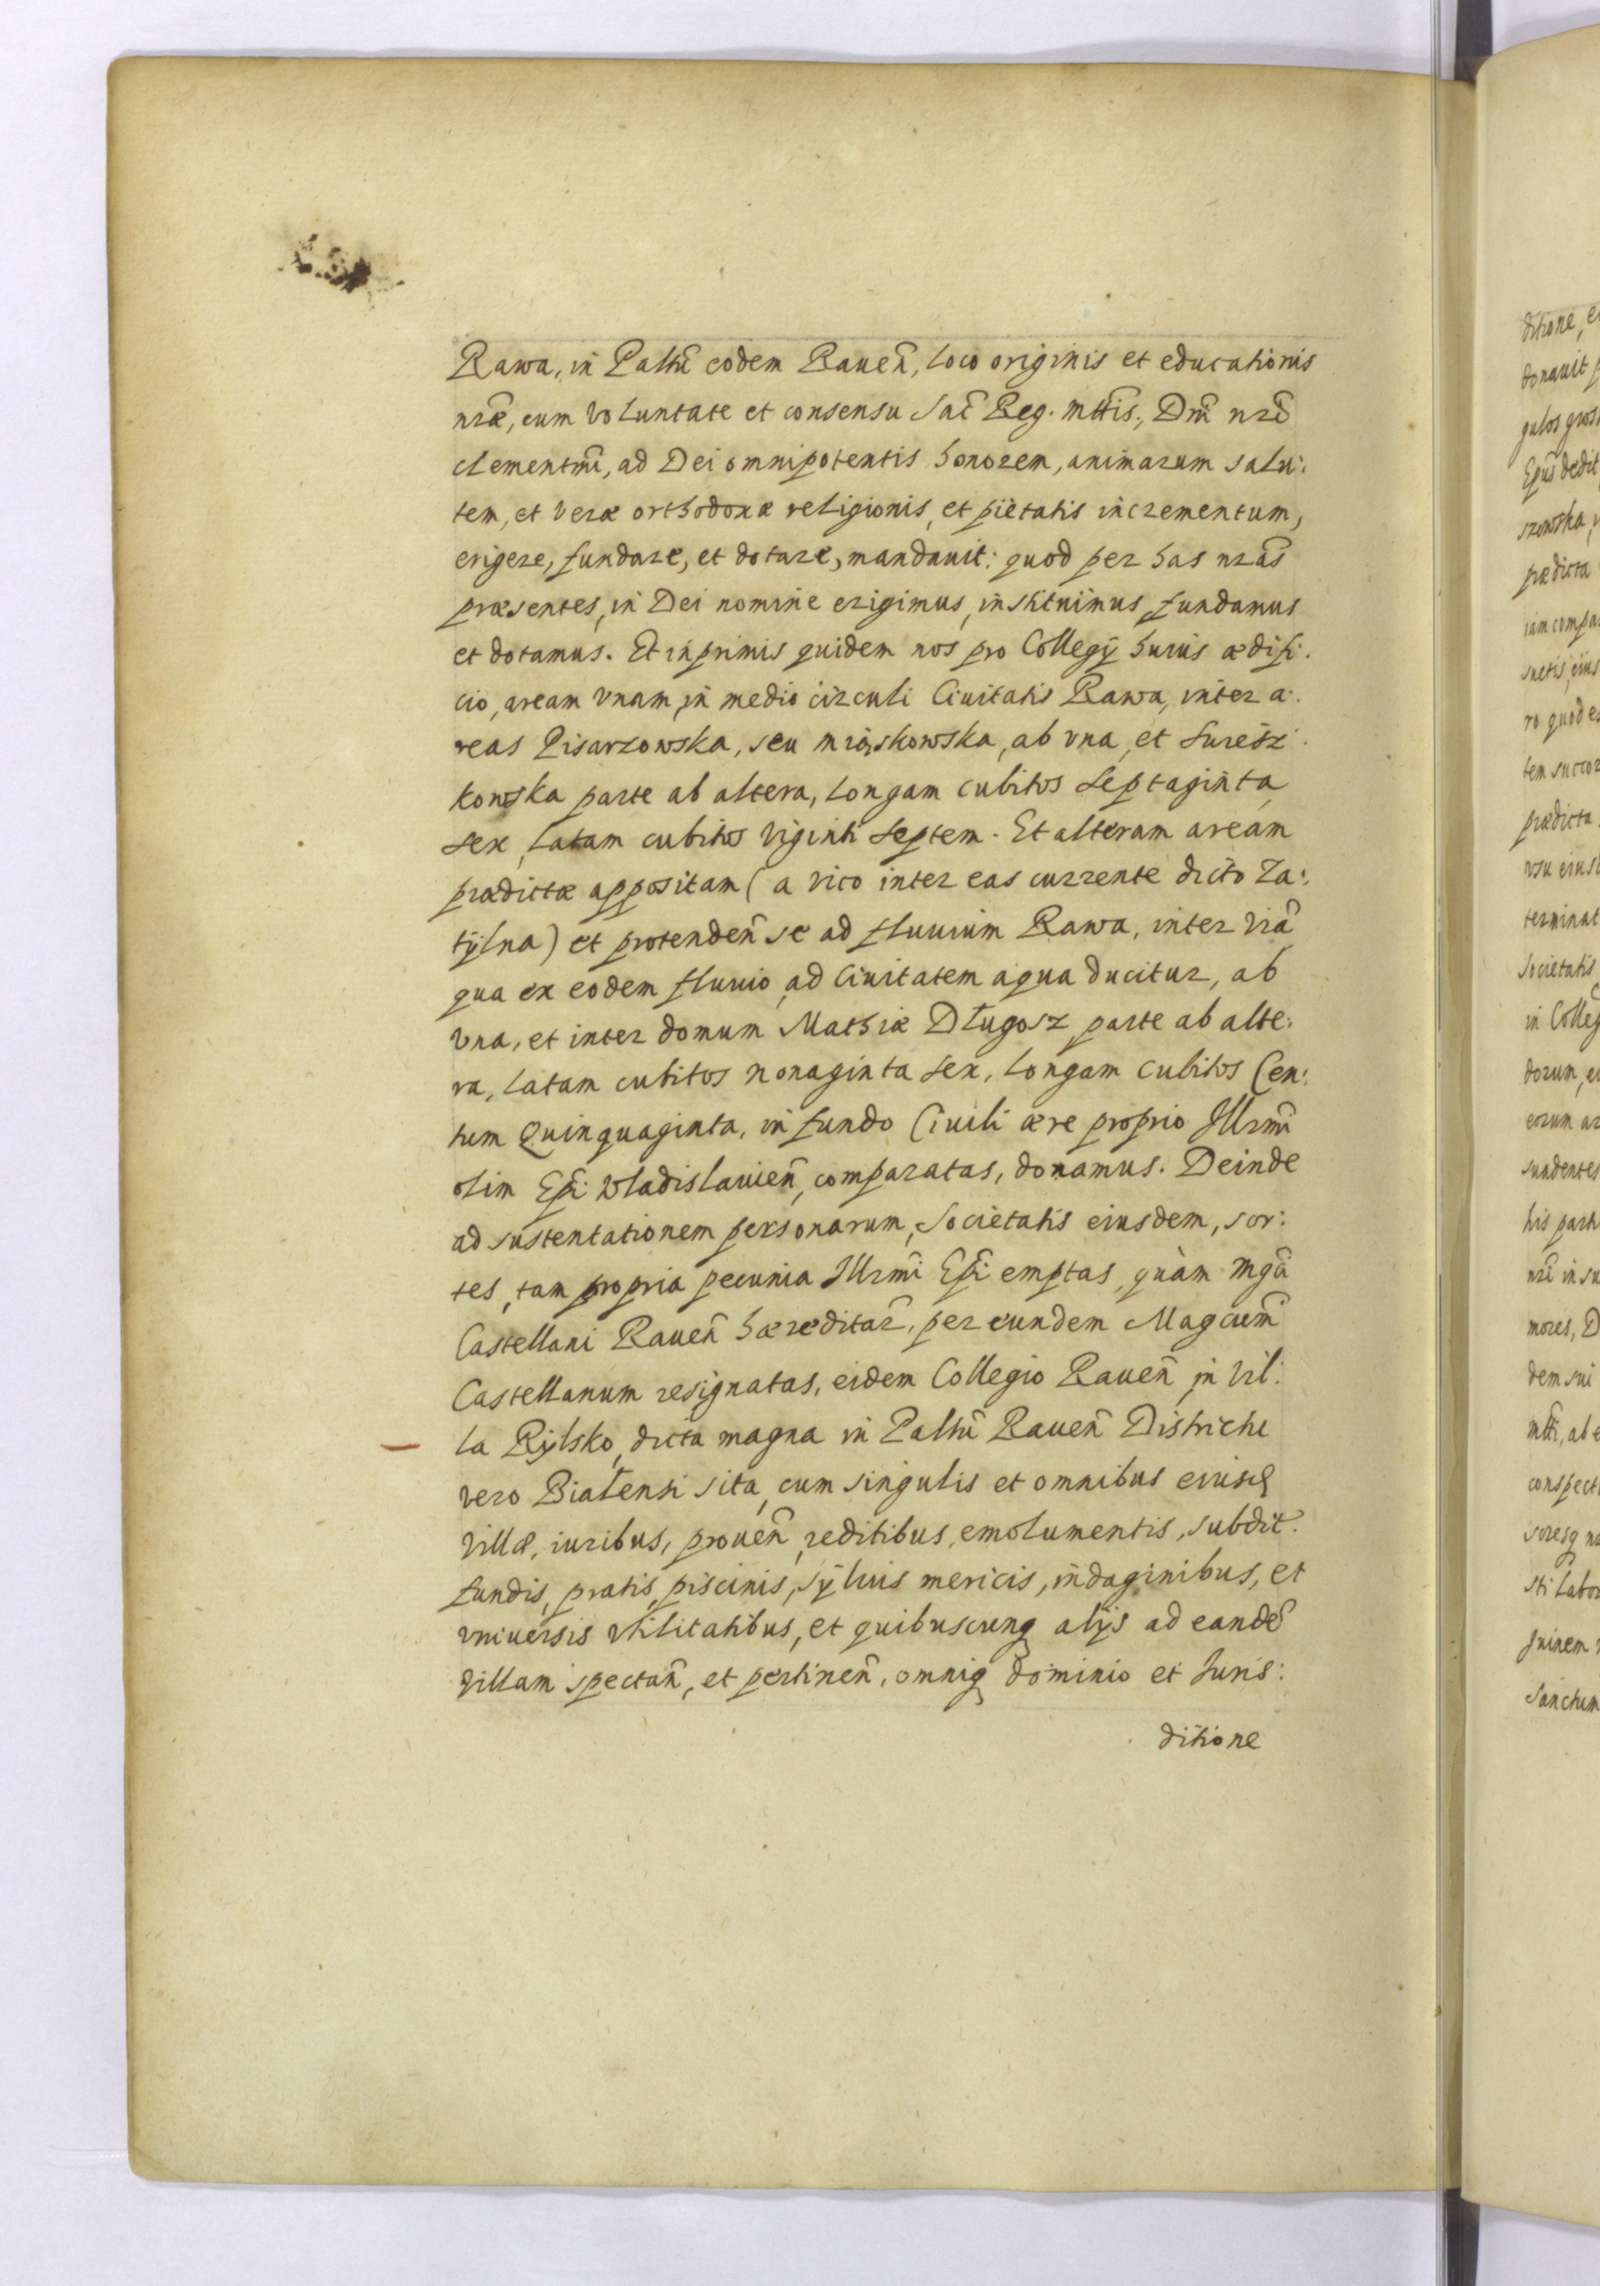 Rawa, in Paltũ eodem Raueñ, loco originis et educationis
nræ, cum voluntate et consensu Sac̃ Reg. Mttis, Dñi nrĩ
clementmĩ, ad Dei omnipotentis honorem, animarum salu:
tem, et veræ orthodoxæ religionis, et pietatis incrementum,
erigere, fundare, et dotare, mandauit: quod per has nrãs
præsentes, in Dei nomine erigimus, instituimus, fundamus
et dotamus. Et inprimis quidem nos pro Collegÿ huius ædifi:
cio, aream vnam, in medio circuli Ciuitatis Rawa, inter a:
reas Pisarzowska, seu Miąskowska, ab vna, et
kowska parte ab altera, longam cubitos Septaginta
sex, latam cubitos viginti septem. Et alteram aream
prædictæ appositam (a vico inter eas currente dicto Za:
tÿlna) et protendeñ se ad fluuium Rawa, inter viã
qua ex eodem fluuio ad Ciuitatem aqua ducitur, ab
vna, et inter domum Mathiæ Długosz parte ab alte:
ra, latam cubitos nonaginta sex, longam cubitos Cen:
tum Quinquaginta, in fundo Ciuili ære proprio Illrmĩ
olim Epĩ Wladislauieñ, comparatas, donamus. Deinde
ad sustentationem personarum, Societatis eiusdem, sor:
tes, tam propria pecunia Illrmĩ Epĩ emptas, quàm Mgcĩ
Castellani Raueñ hæreditar̃, per eundem Magcum̃
Castellanum resignatas, eidem Collegio Raueñ in Vil:
la Rÿlsko, dicta magna in Paltũ Raueñ Districtu
vero Białensi sita, cum singulis et omnibus eiusd
villæ, iuribus, proueñ, reditibus, emolumentis, subdit̃
fundis, pratis, piscinis, sÿluis mericis, indaginibus, et
vniuersis vtilitatibus, et quibuscunq alÿs ad eandẽ
villam spectañ, et pertineñ, omniq dominio et Iuris:
ditione
ditione, e
donauit p
gulos gros
Epũs dedit
szowska,
prædicta
iam compa
suetis, eius
ro quod e
tem succor
prædicta
vsu eiusd
terminat
Societatis
in Colleg
dorum, e
eorum ar
suadentes
his parti
nrĩ in su
mores, D
dem sui
mtti, ab e
conspect
soresq no
sti labor
guinem
Sanctum